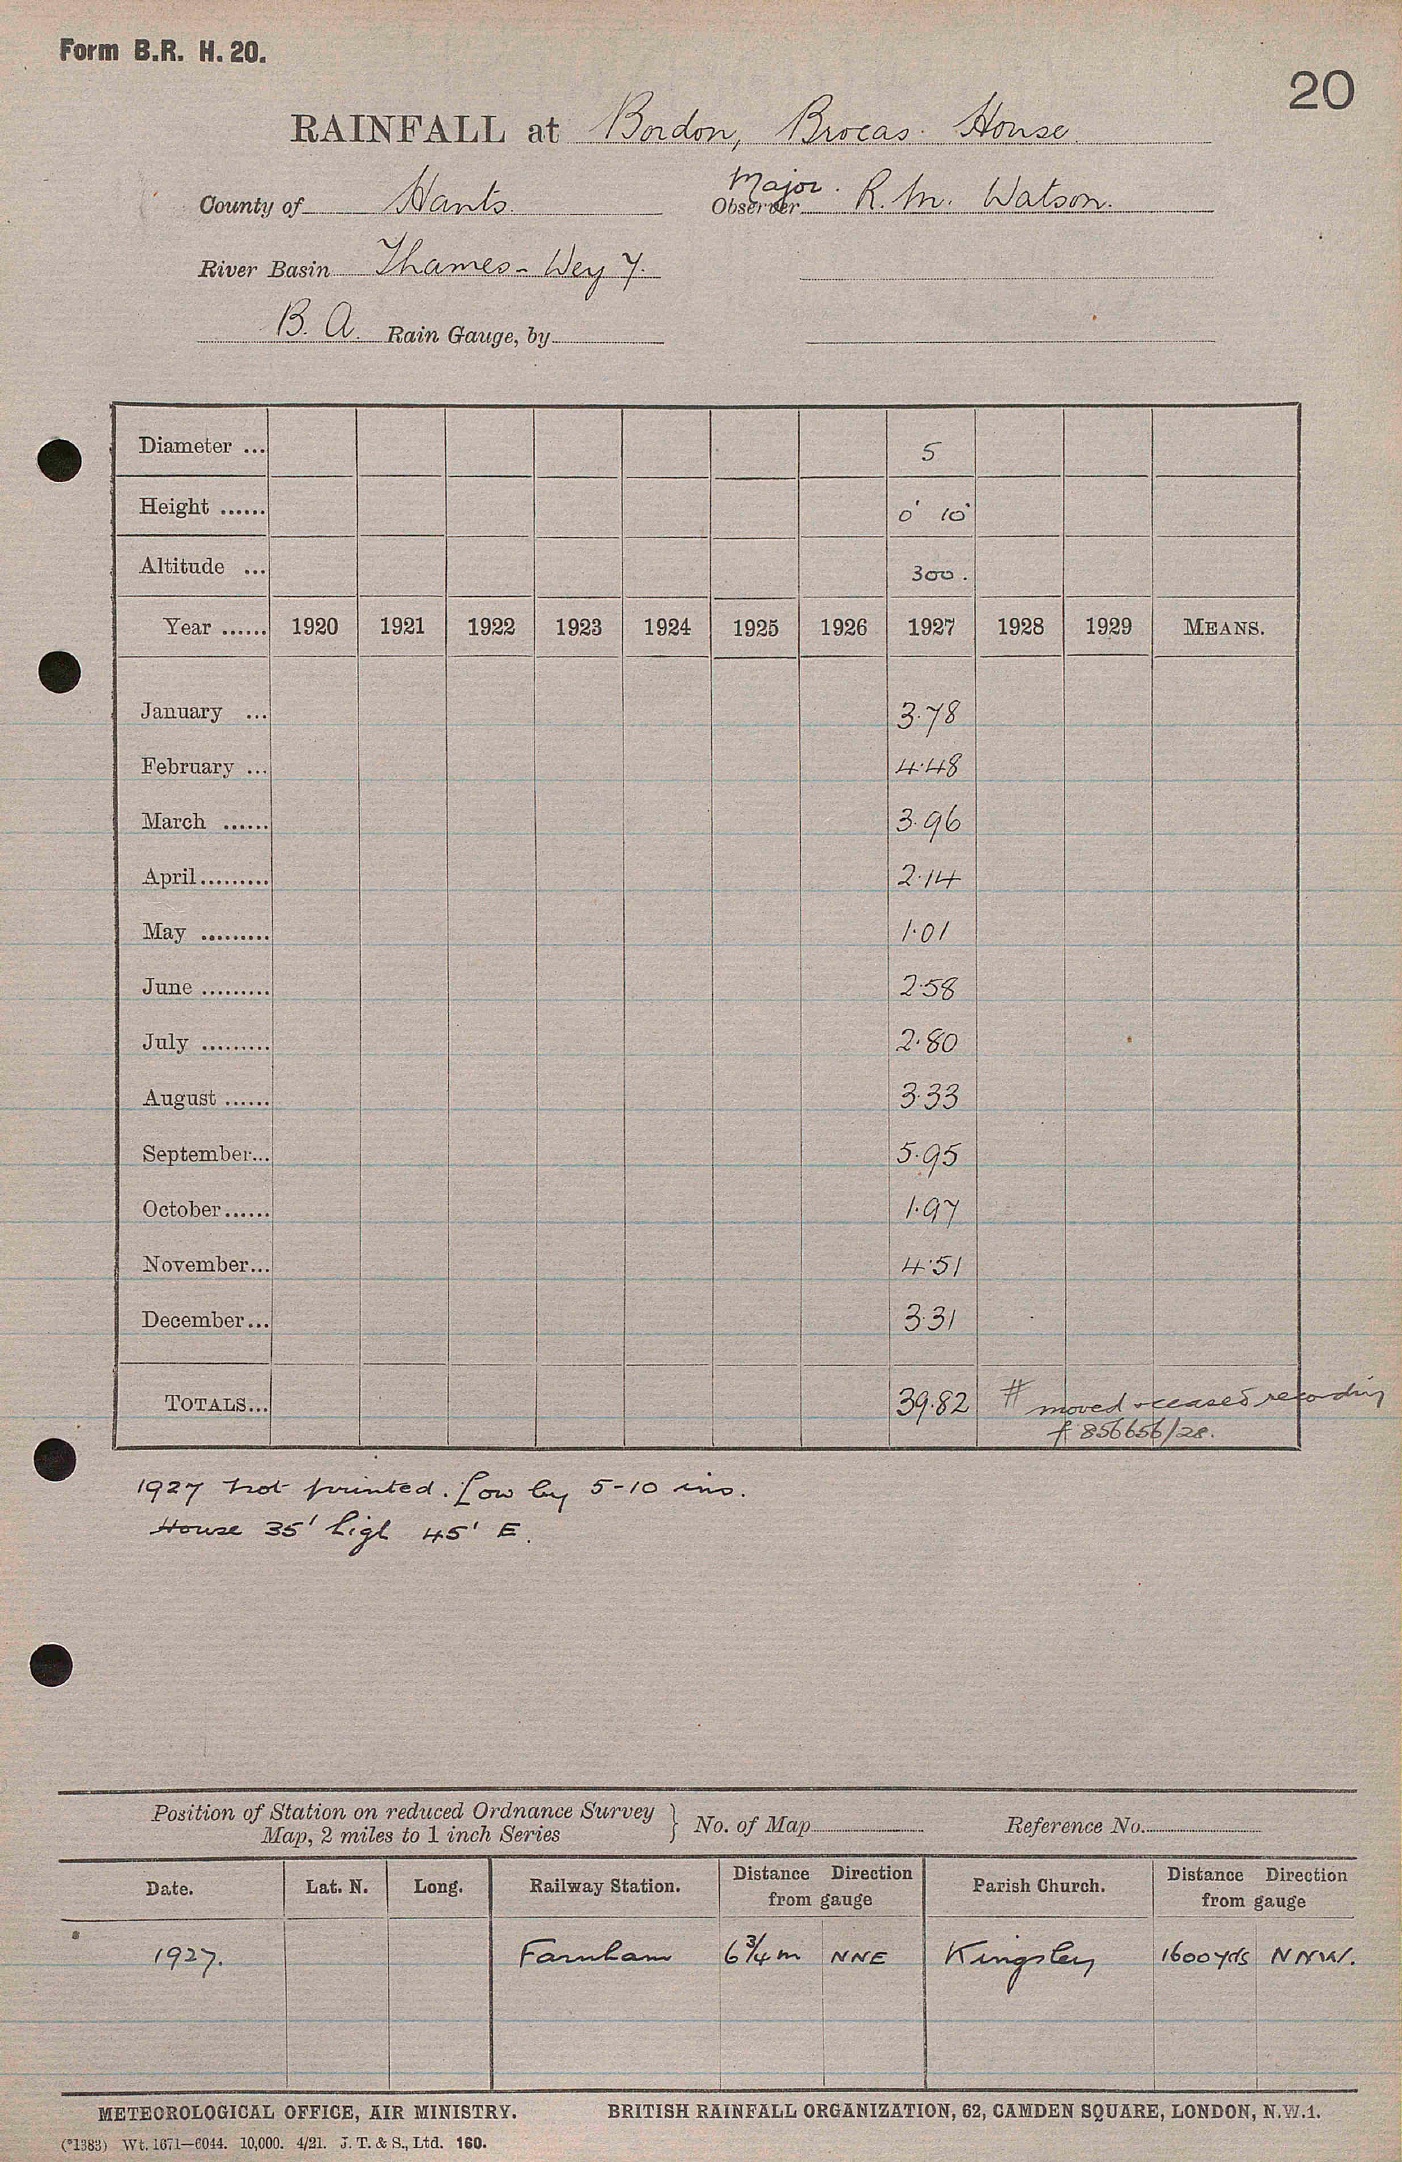 Form B.R. H. 20.
20
RAINFALL at Bordon, Brocas House.
County of Hants. Major. Observer R. M. Watson.
River Basin Thames - Wey 7.
B. A. Rain Gauge, by
Diameter ... 5
Height ...... 0' 10"
Altitude ... 300.
Year ...... 1920 1921 1922 1923 1924 1925 1926 1927 1928 1929 MEANS.
January ... 3.78
February ... 4.48
March ...... 3.96
April......... 2.14
May ......... 1.01
June ......... 2.58
July ......... 2.80
August ...... 3.33
September... 5.95
October...... 1.97
November... 4.51
December... 3.31
TOTALS... 39.82 # moved & ceased recording
f 856656/28.
1927 not printed. Low by 5-10 ins.
House 35' high 45' E.
Position of Station on reduced Ordnance Survey
Map, 2 miles to 1 inch Series } No. of Map Reference No.
Date. Lat. N. Long. Railway Station. Distance Direction from gauge Parish Church. Distance Direction from gauge
1927. Farnham 6 3/4 m NNE Kingsley 1600 yds NNW.
METEOROLOGICAL OFFICE, AIR MINISTRY. BRITISH RAINFALL ORGANIZATION, 62, CAMDEN SQUARE, LONDON, N.W.1.
(*1383) Wt. 1671—6044. 10,000. 4/21. J. T. & S., Ltd. 160.